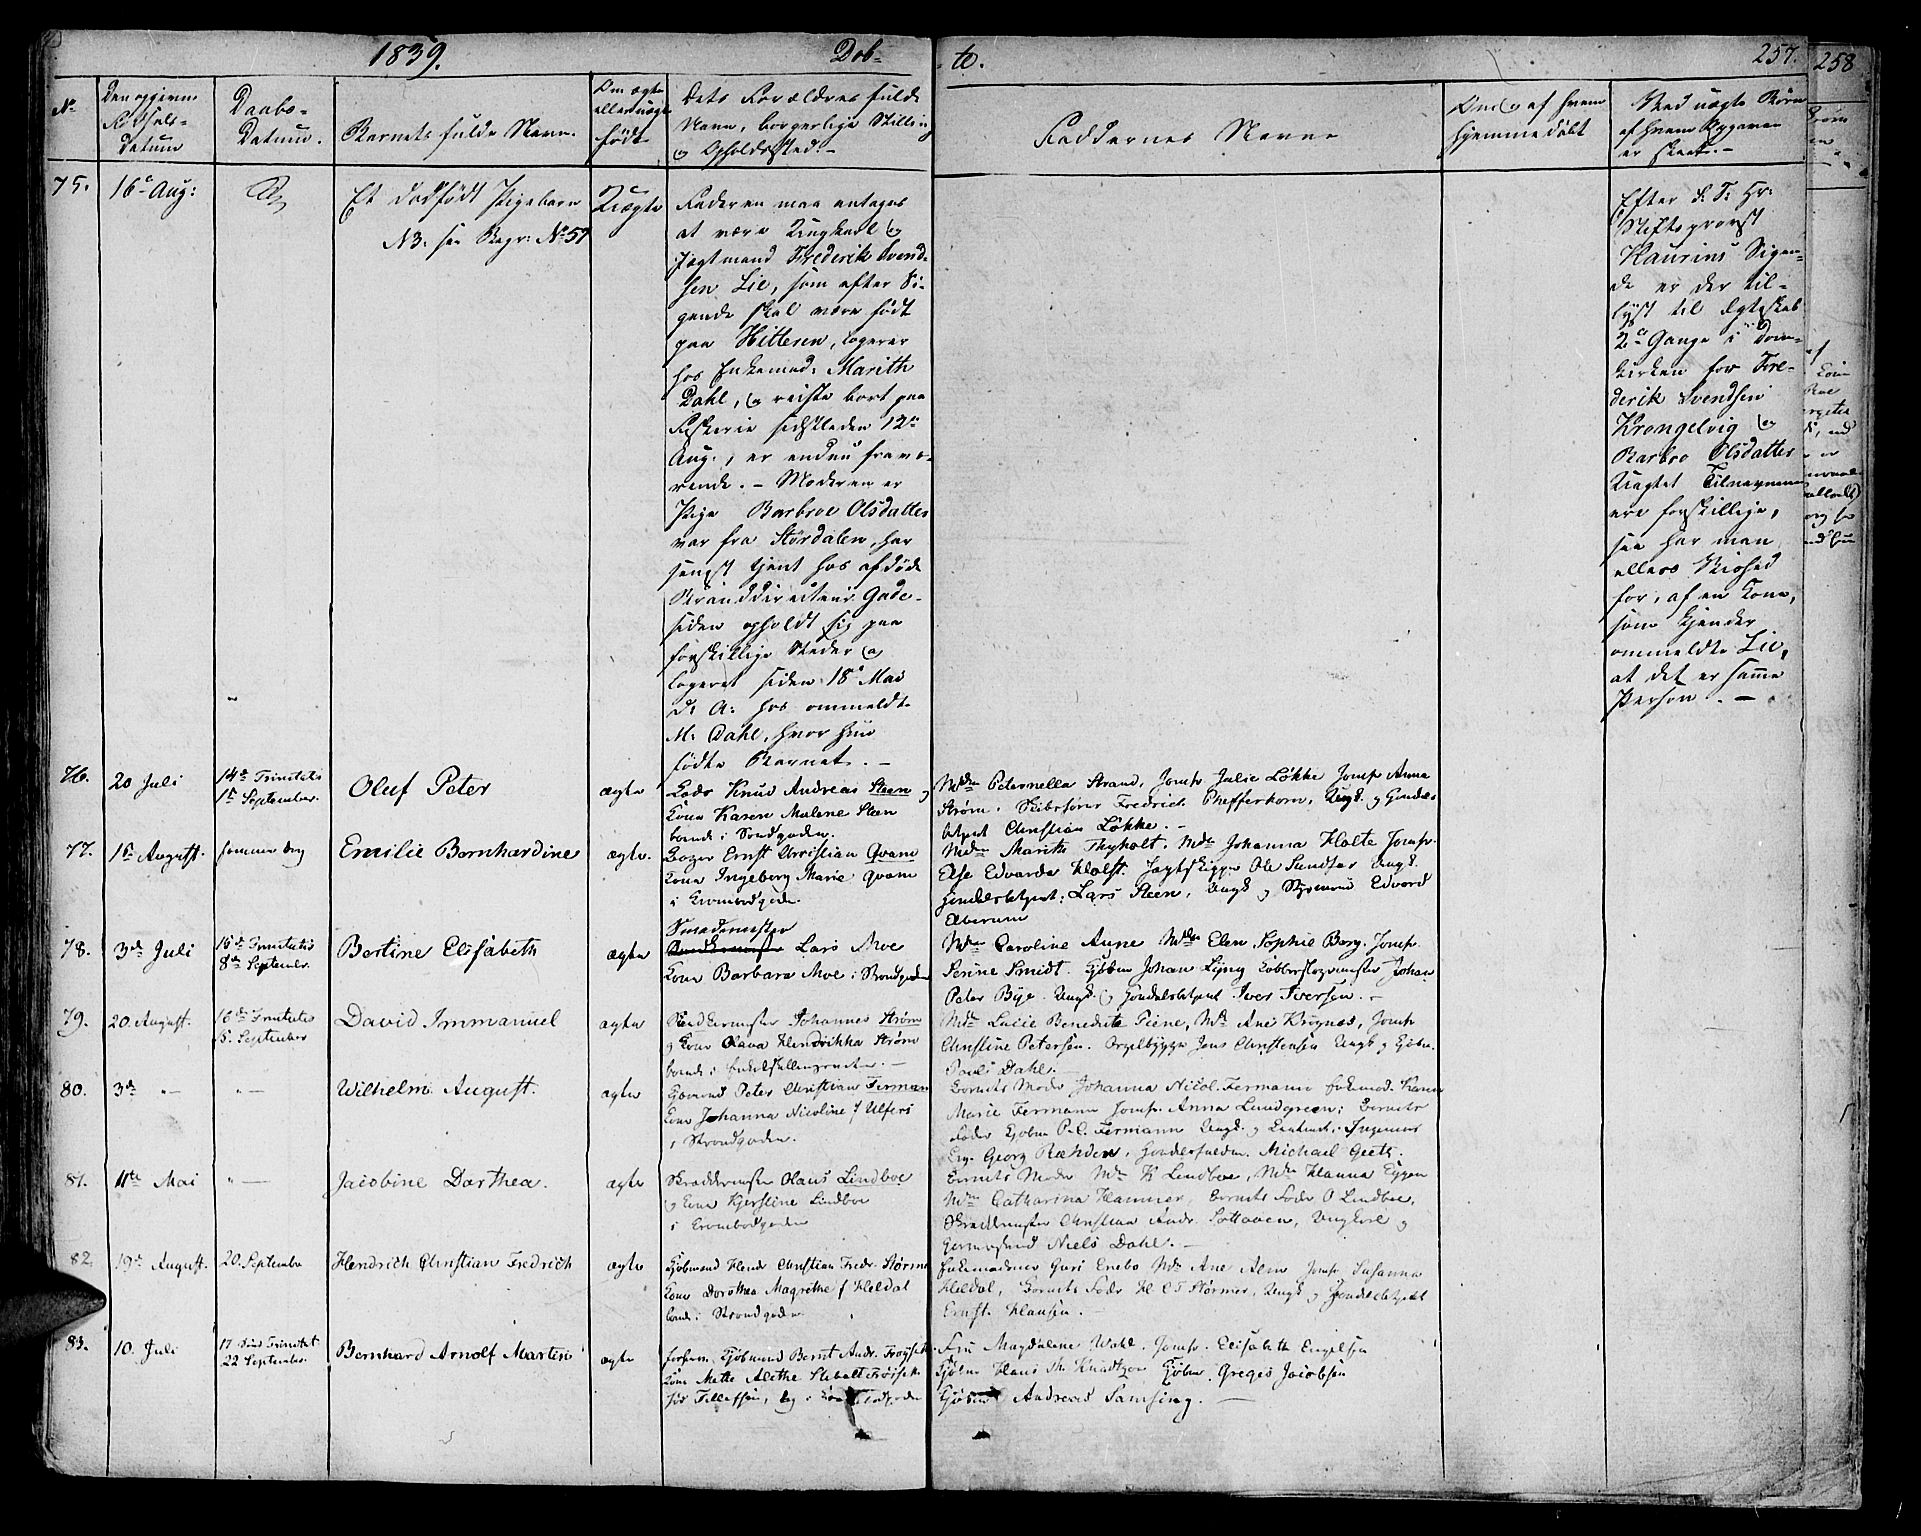 1839. Døb-
te. 257. 258
No
Den opgivne
Fødsels-
Datum
Daabs-
Datum.
Barnets fulde Navn.
Om ægte
eller uægte
født
Dets Forældres fulde
Navn, borgerlige Stilling
og Opholdssted.
Faddernes Navne
Om og af hvem
hjemmedøbt
Ved uægte Børn
af hvem Opgaven
er skeet.
75. 16de Aug:
Et dødfødt Pigebarn
NB. see Begr: No 57
Uægte
Faderen maa antages
at være Ungkarl og
Jægtmand Frederik Svend-
sen Lie, som efter Si-
gende skal være født
paa Hitteren, logerer
hos Enkemad: Marith
Dahl, og reiste bort paa
Fiskerie sidstleden 12te
Aug:, er endnu fravæ-
rende. - Moderen er
Pige Barbroe Olsdatter
var fra Størdalen, har
længst tjent hos afdøde
Stranddirecteur Gade
siden opholdt sig paa
forskillige Steder og
logeret siden 18de Mai
d: A: hos ommeldte
M: Dahl, hvor hun
fødte Barnet. -
Efter S. T. Hr:
Stiftsprovst
Haurins Sigen-
de er der til-
lyst til Ægteskab
2de Gange i Dom-
kirken for Fre-
derik Svendsen
Krongelvig og
Barbro Olsdatter
Uagtet Tilnavnene
ere forskillige,
saa har man
ellers Vished
for, af en Kone,
som kjender
ommeldte Lie,
at det er samme
Person. -
76. 20 Juli
14de Trinitatis
1st September.
Oluf Peter
ægte
Lods Knud Andreas Steen og
Kone Karen Malene Steen
boende i Strandgaden.
Mdm Peternella Strand, Jomfr Julie Løkke Jomfr Anna
Strøm. Skibsfører Fredrich Phefferkorn, Ungk. og Handels-
betjent Christian Løkke. -
77. 1st August. samme Dag Emilie Bernhardine ægte.
Ernst Christian Qvam
Kone Ingeborg Marie Qvam
i
Mdm Marith Thyholt. Mdm Johanna Holte Jomfr.
Else Edvarda Holst. Jagtskipper Ole Sundsær Ungk.
Handelsbetjent: Lars Steen, Ungk og Edvard
78. 3de Juli
15de Trinitatis
8de September.
Bertine Elisabeth
ægte
Smedemester
Lars Moe
Kone Barbara Moe i Strandgaden
Mdm Caroline Aune Mdm Elen Sophie Berg. Jomfr.
Serine Smidt. Kjøbm Johan Lyng Kobberslagermester Johan
Peter Bye. Ungk. og Handelsbetjent Iver Iversen. -
79. 20. August.
16de Trinitatis
15. September
David Immanuel
ægte
Johannes Strøm
og Kone Olava Hendrikka Strøm
boende i
Mdm Lucie Benedicte Piene, Mdm Ane Krognes, Jomfr
Christine Petersen. Orgelbygger Jens Christensen Ungk og Gjørtler.
Pauls Dahl. -
80. 3de -"- -"-
Wilhelm August.
ægte
Kjøbmand Peter Christian Fermann
Kone Johanna Nicoline f Ulfers
i Strandgaden.
Barnets Moder Johanna Nicol. Fermann Enkemad. Karen
Marie Fermann Jomfr. Anna Lundgreen; Barnets
Fader Kjøbm P. C. Fermann Ungk. og Lieutnt. i Ingenieur
Georg Ræhder, Handelsfuldm. Michael Geetz.
81. 11te Mai "-
Jacobine Dorthea.
ægte
Skræddermester Olaus Lindboe
og Kone Kjerstine Lindboe
i
Barnets Moder Mdm K Lindboe, Mdm Hanna Eggen
Mdm Catharina Hammer, Barnets Fader O Lindboe,
Skræddermester Christian Andr. Sottaven, Ungkarl og
Niels Dahl. -
82. 19de August. 20. September
Hendrich Christian Fredrich
ægte
Kjøbmand Hendr Christian Fredr. Størmer
Kone Dorothea Magrethe f Heldal
boende i Strandgaden
Enkemadmer Guri Enebo Mdm Ane Alm Jomfr Susanna
Heldal, Barnets Fader H C F Størmer, Ungk og Handelsbetjent
Ernst Klausen. -
83. 10. Juli
17 Trinitat
22 September
Bernhard Arnolf Martin
ægte
Kjøbmand Bernt Andr.
Kone Mette Alethe
Fru Magdalene Wahl. Jomfr. Elisabeth Engelsen
Kjøbm Hans M. Knudtzon Kjøbm. Greges Jacobsen
Kjøbm Andreas Samsing. -